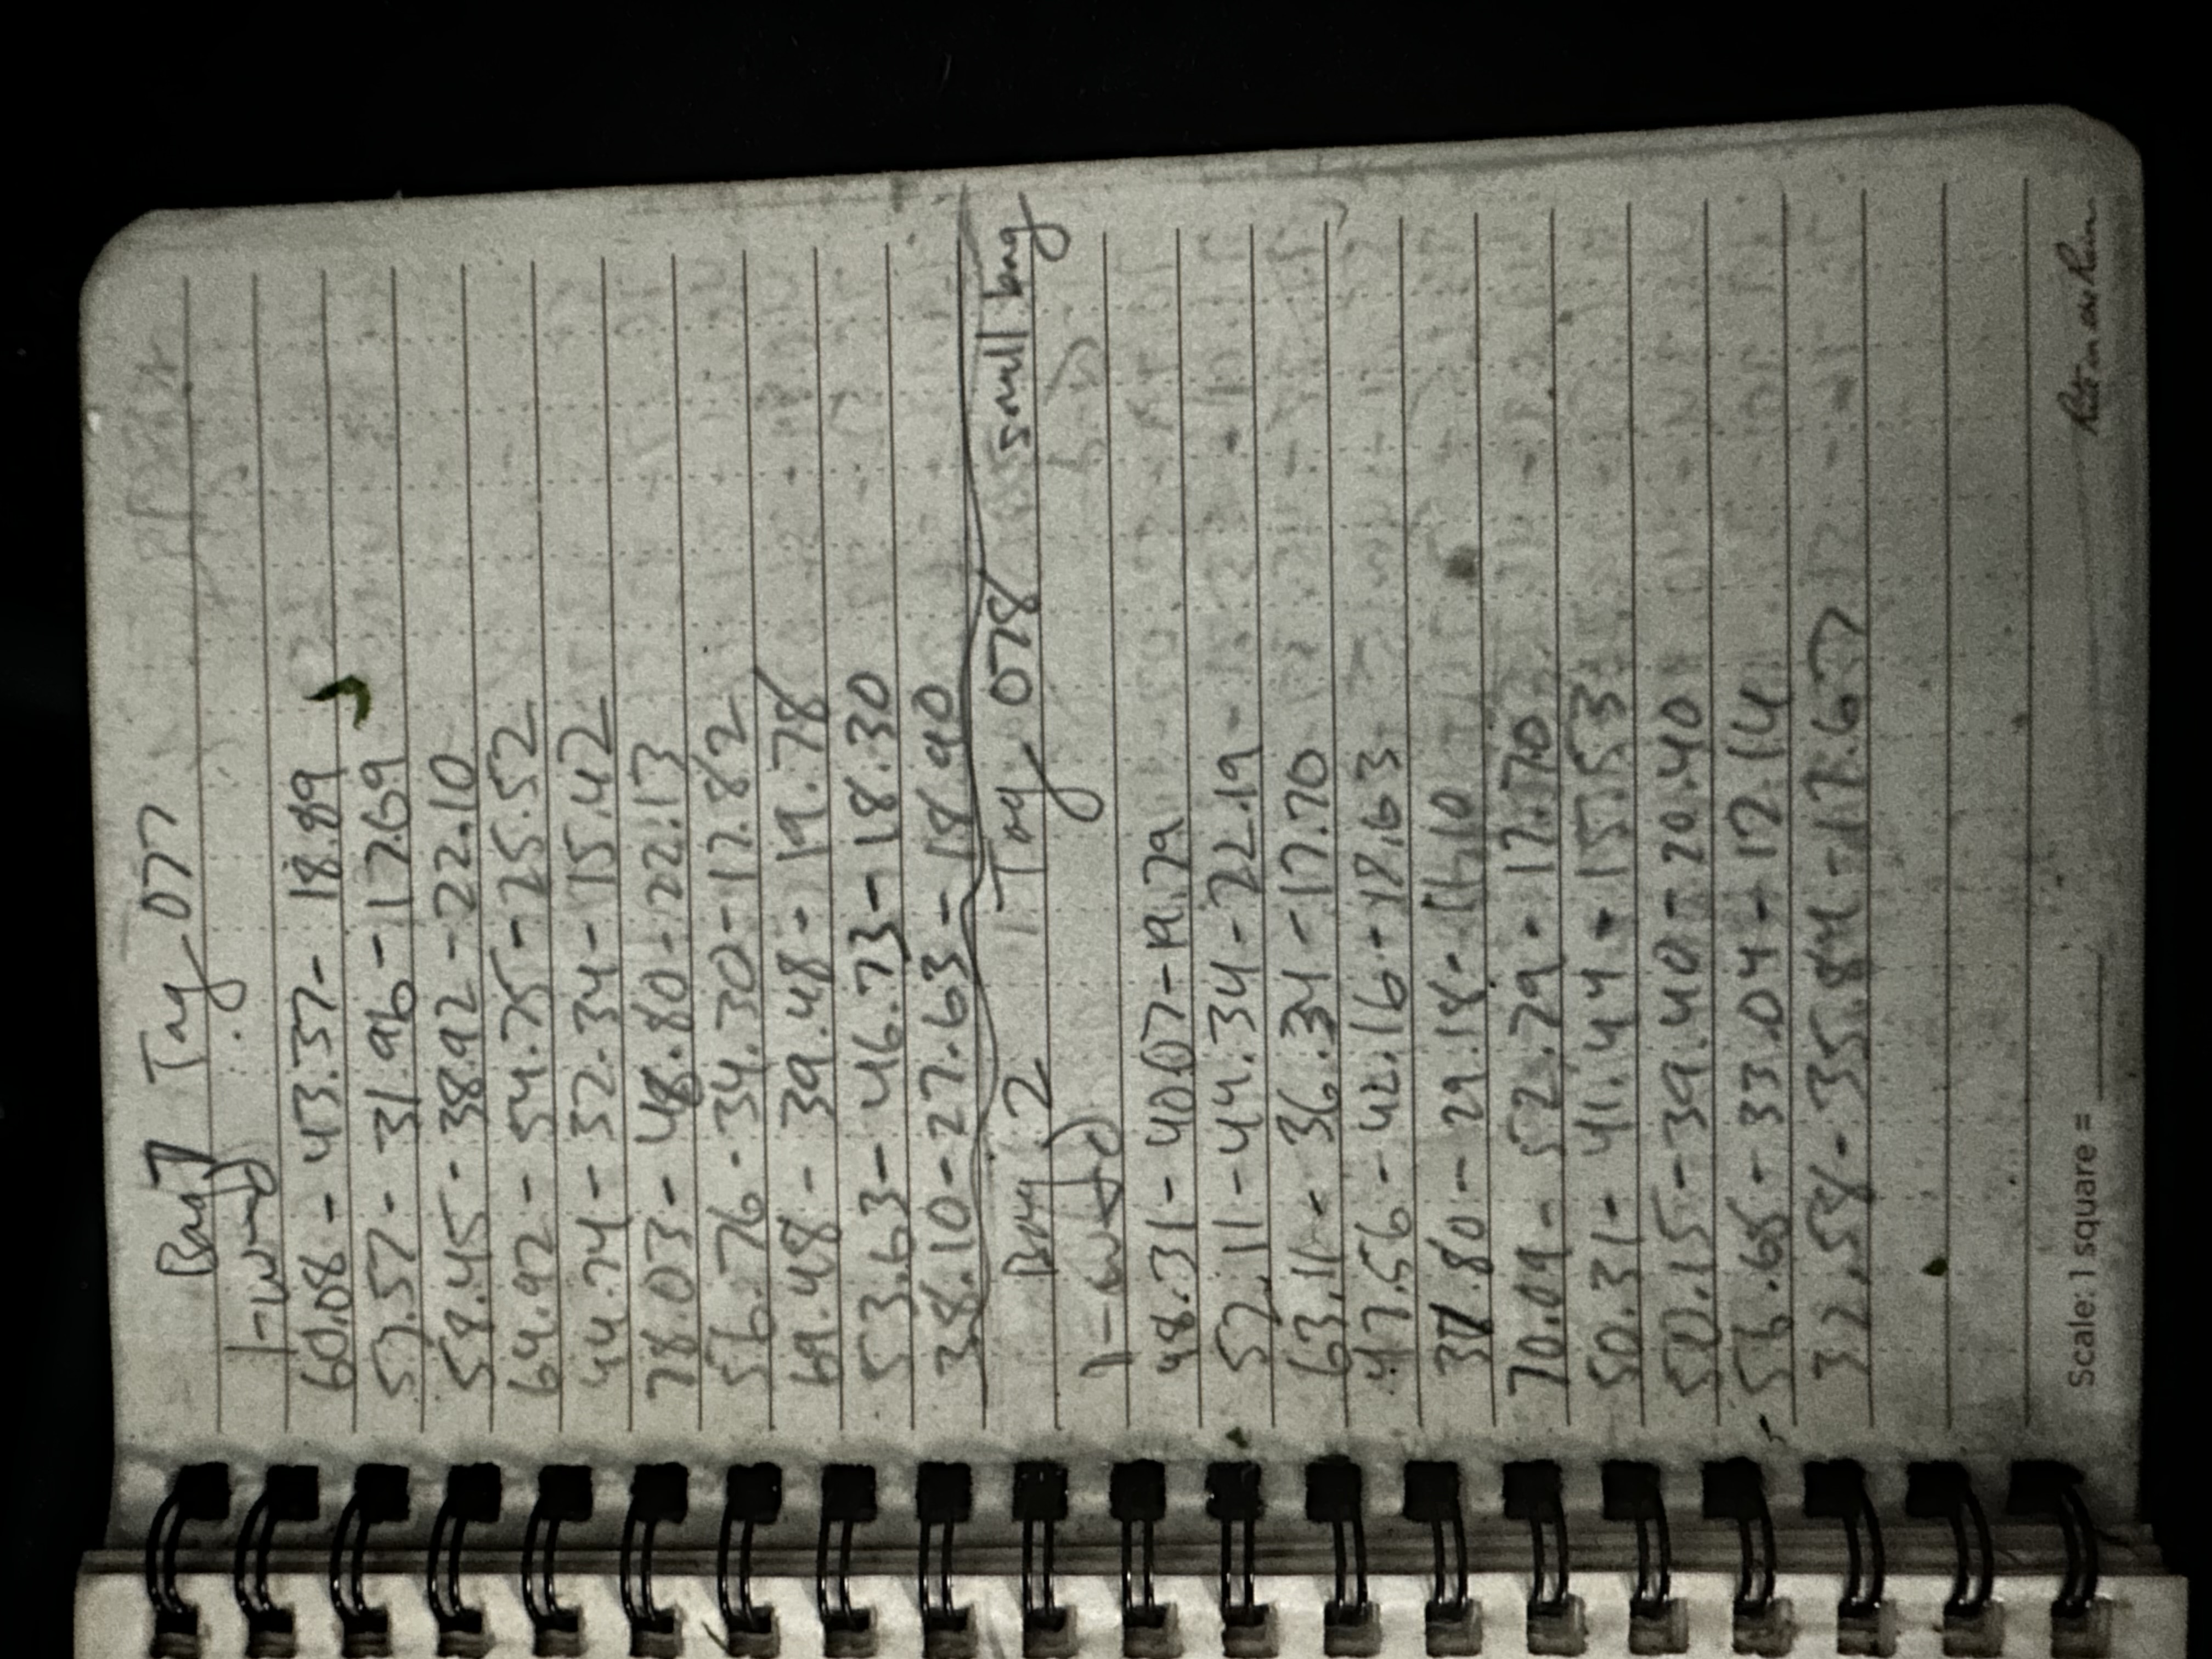 Bag 1 Tag 077
l-w-d
60.08 - 43.37 - 18.89
57.57 - 31.96 - 17.69
58.45 - 38.92 - 22.10
64.92 - 54.75 - 25.52
44.74 - 32.34 - 15.42
78.03 - 48.80 - 22.13
56.76 - 34.30 - 17.82
69.48 - 39.48 - 19.78
53.63 - 46.73 - 18.30
38.10 - 27.63 - 18.90
Bag 2 Tag 078 small bag
l-w-d
48.31 - 40.07 - 19.79
52.11 - 44.34 - 22.19
63.11 - 36.34 - 17.70
47.56 - 42.16 - 18.63
37.80 - 29.18 -
70.09 - 52.79 - 17.70
50.31 - 41.44 - 15.53
50.15 - 39.40 - 20.40
56.65 - 33.04 - 17.14
32.58 - 35.84 - 17.67
Scale: 1 square =
Rite in the Rain